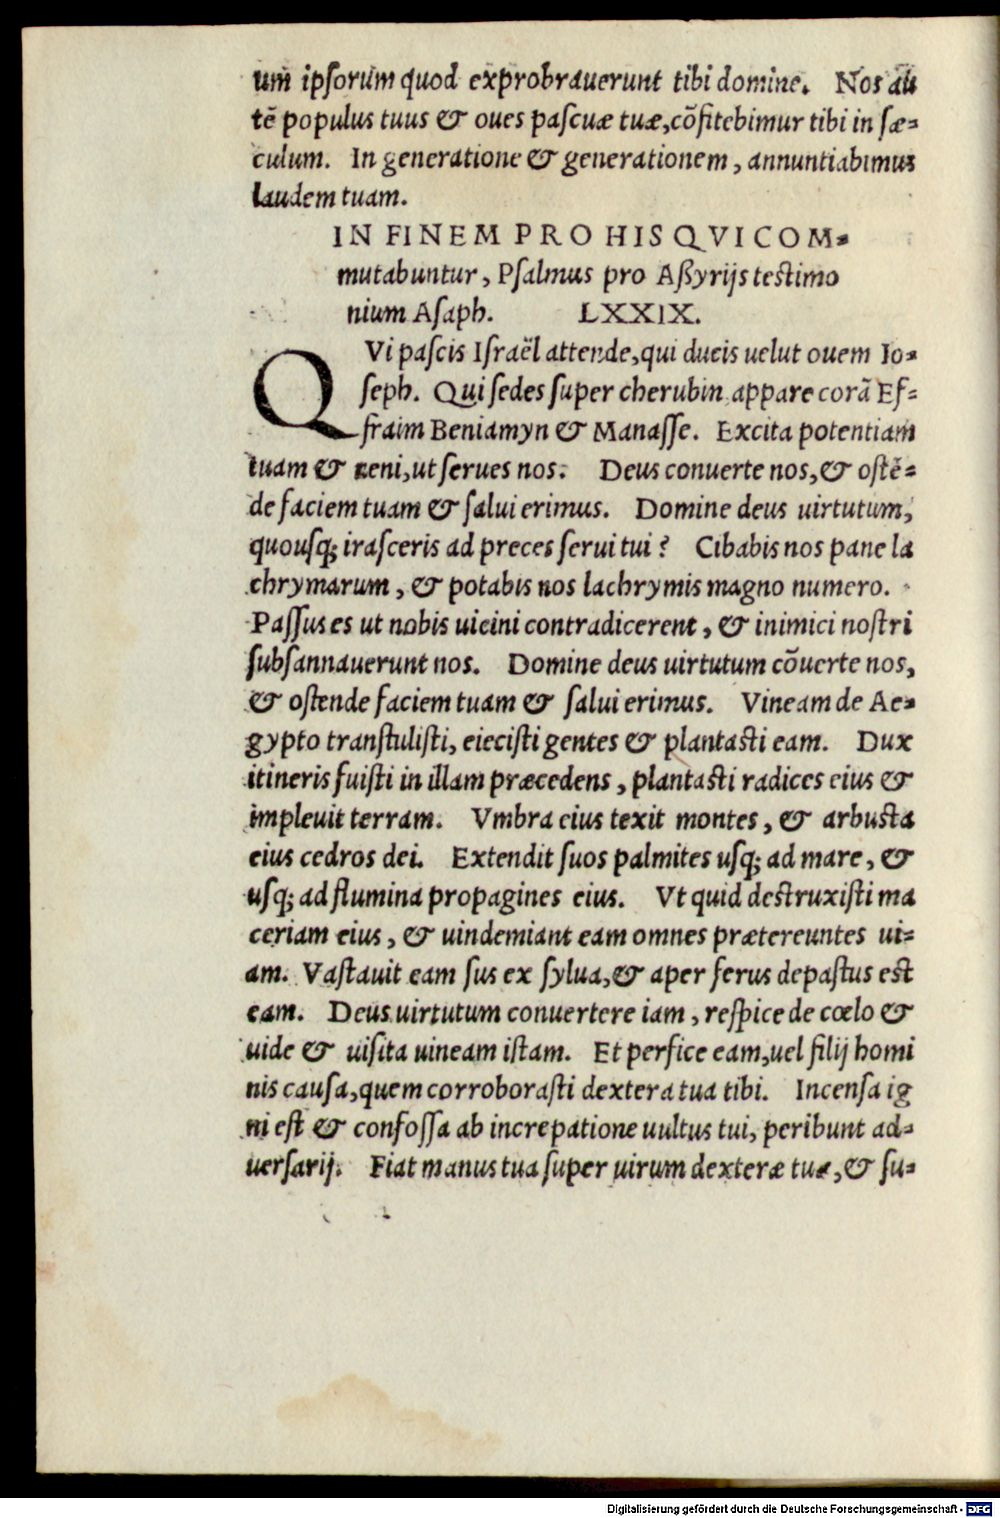 um̃ ipſorum quod exprobrauerunt tibi domine. Nos aũ
tẽ populus tuus & oues paſcuæ tuæ,cõfitebimur tibi in ſæ-
culum. In generatione & generationem, annuntiabimus
laudem tuam.
IN FINEM PRO HIS QVI COM-
mutabuntur, Pſalmus pro Aßyrijs teſtimo
nium Aſaph. LXXIX.
QVi paſcis Iſraël attende,qui ducis uelut ouem Io-
ſeph. Qui ſedes ſuper cherubin appare corã Ef-
fraim Beniamyn & Manaſſe. Excita potentiam
tuam & ueni,ut ſerues nos. Deus conuerte nos,& oſtẽ-
de faciem tuam & ſalui erimus. Domine deus uirtutum,
quouſq; iraſceris ad preces ſerui tui? Cibabis nos pane la
chrymarum, & potabis nos lachrymis magno numero.
Paſſus es ut nobis uicini contradicerent, & inimici noſtri
ſubſannauerunt nos. Domine deus uirtutum cõuerte nos,
& oſtende faciem tuam & ſalui erimus. Vineam de Ae-
gypto tranſtuliſti, eieciſti gentes & plantaſti eam. Dux
itineris fuiſti in illam præcedens, plantaſti radices eius &
impleuit terram. Vmbra eius texit montes, & arbuſta
eius cedros dei. Extendit ſuos palmites uſq; ad mare, &
uſq; ad flumina propagines eius. Vt quid deſtruxiſti ma
ceriam eius, & uindemiant eam omnes prætereuntes ui-
am. Vaſtauit eam ſus ex ſylua,& aper ferus depaſtus eſt
eam. Deus uirtutum conuertere iam, reſpice de cœlo &
uide & uiſita uineam iſtam. Et perfice eam,uel filij homi
nis cauſa,quem corroboraſti dextera tua tibi. Incenſa ig
ni eſt & confoſſa ab increpatione uultus tui, peribunt ad-
uerſarij. Fiat manus tua ſuper uirum dexteræ tuæ,& ſu-
Digitalisierung gefördert durch die Deutsche Forschungsgemeinschaft - DFG